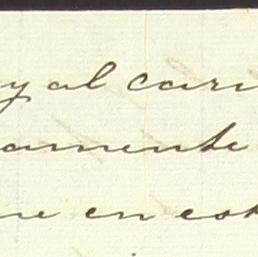 y al cari
amente
ue en est